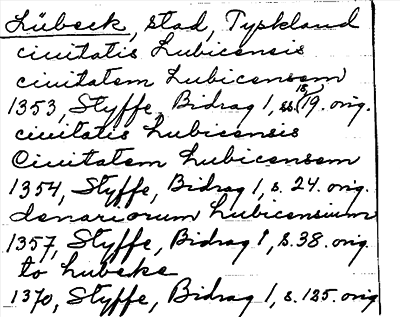 Lübeck, stad, Tyskland
ciuitatis Lubicensis
ciuitatem Lubicensem
1353, Styffe, Bidrag 1, ss 18, 19. orig.
ciuitatis Lubicensis
Ciuitatem Lubicensem
1354, Styffe, Bidrag 1, s. 24. orig.
denariorum Lubicensium
1357, Styffe, Bidrag 1, s. 38. orig.
to Lubeke
1370, Styffe, Bidrag 1, s. 125. orig